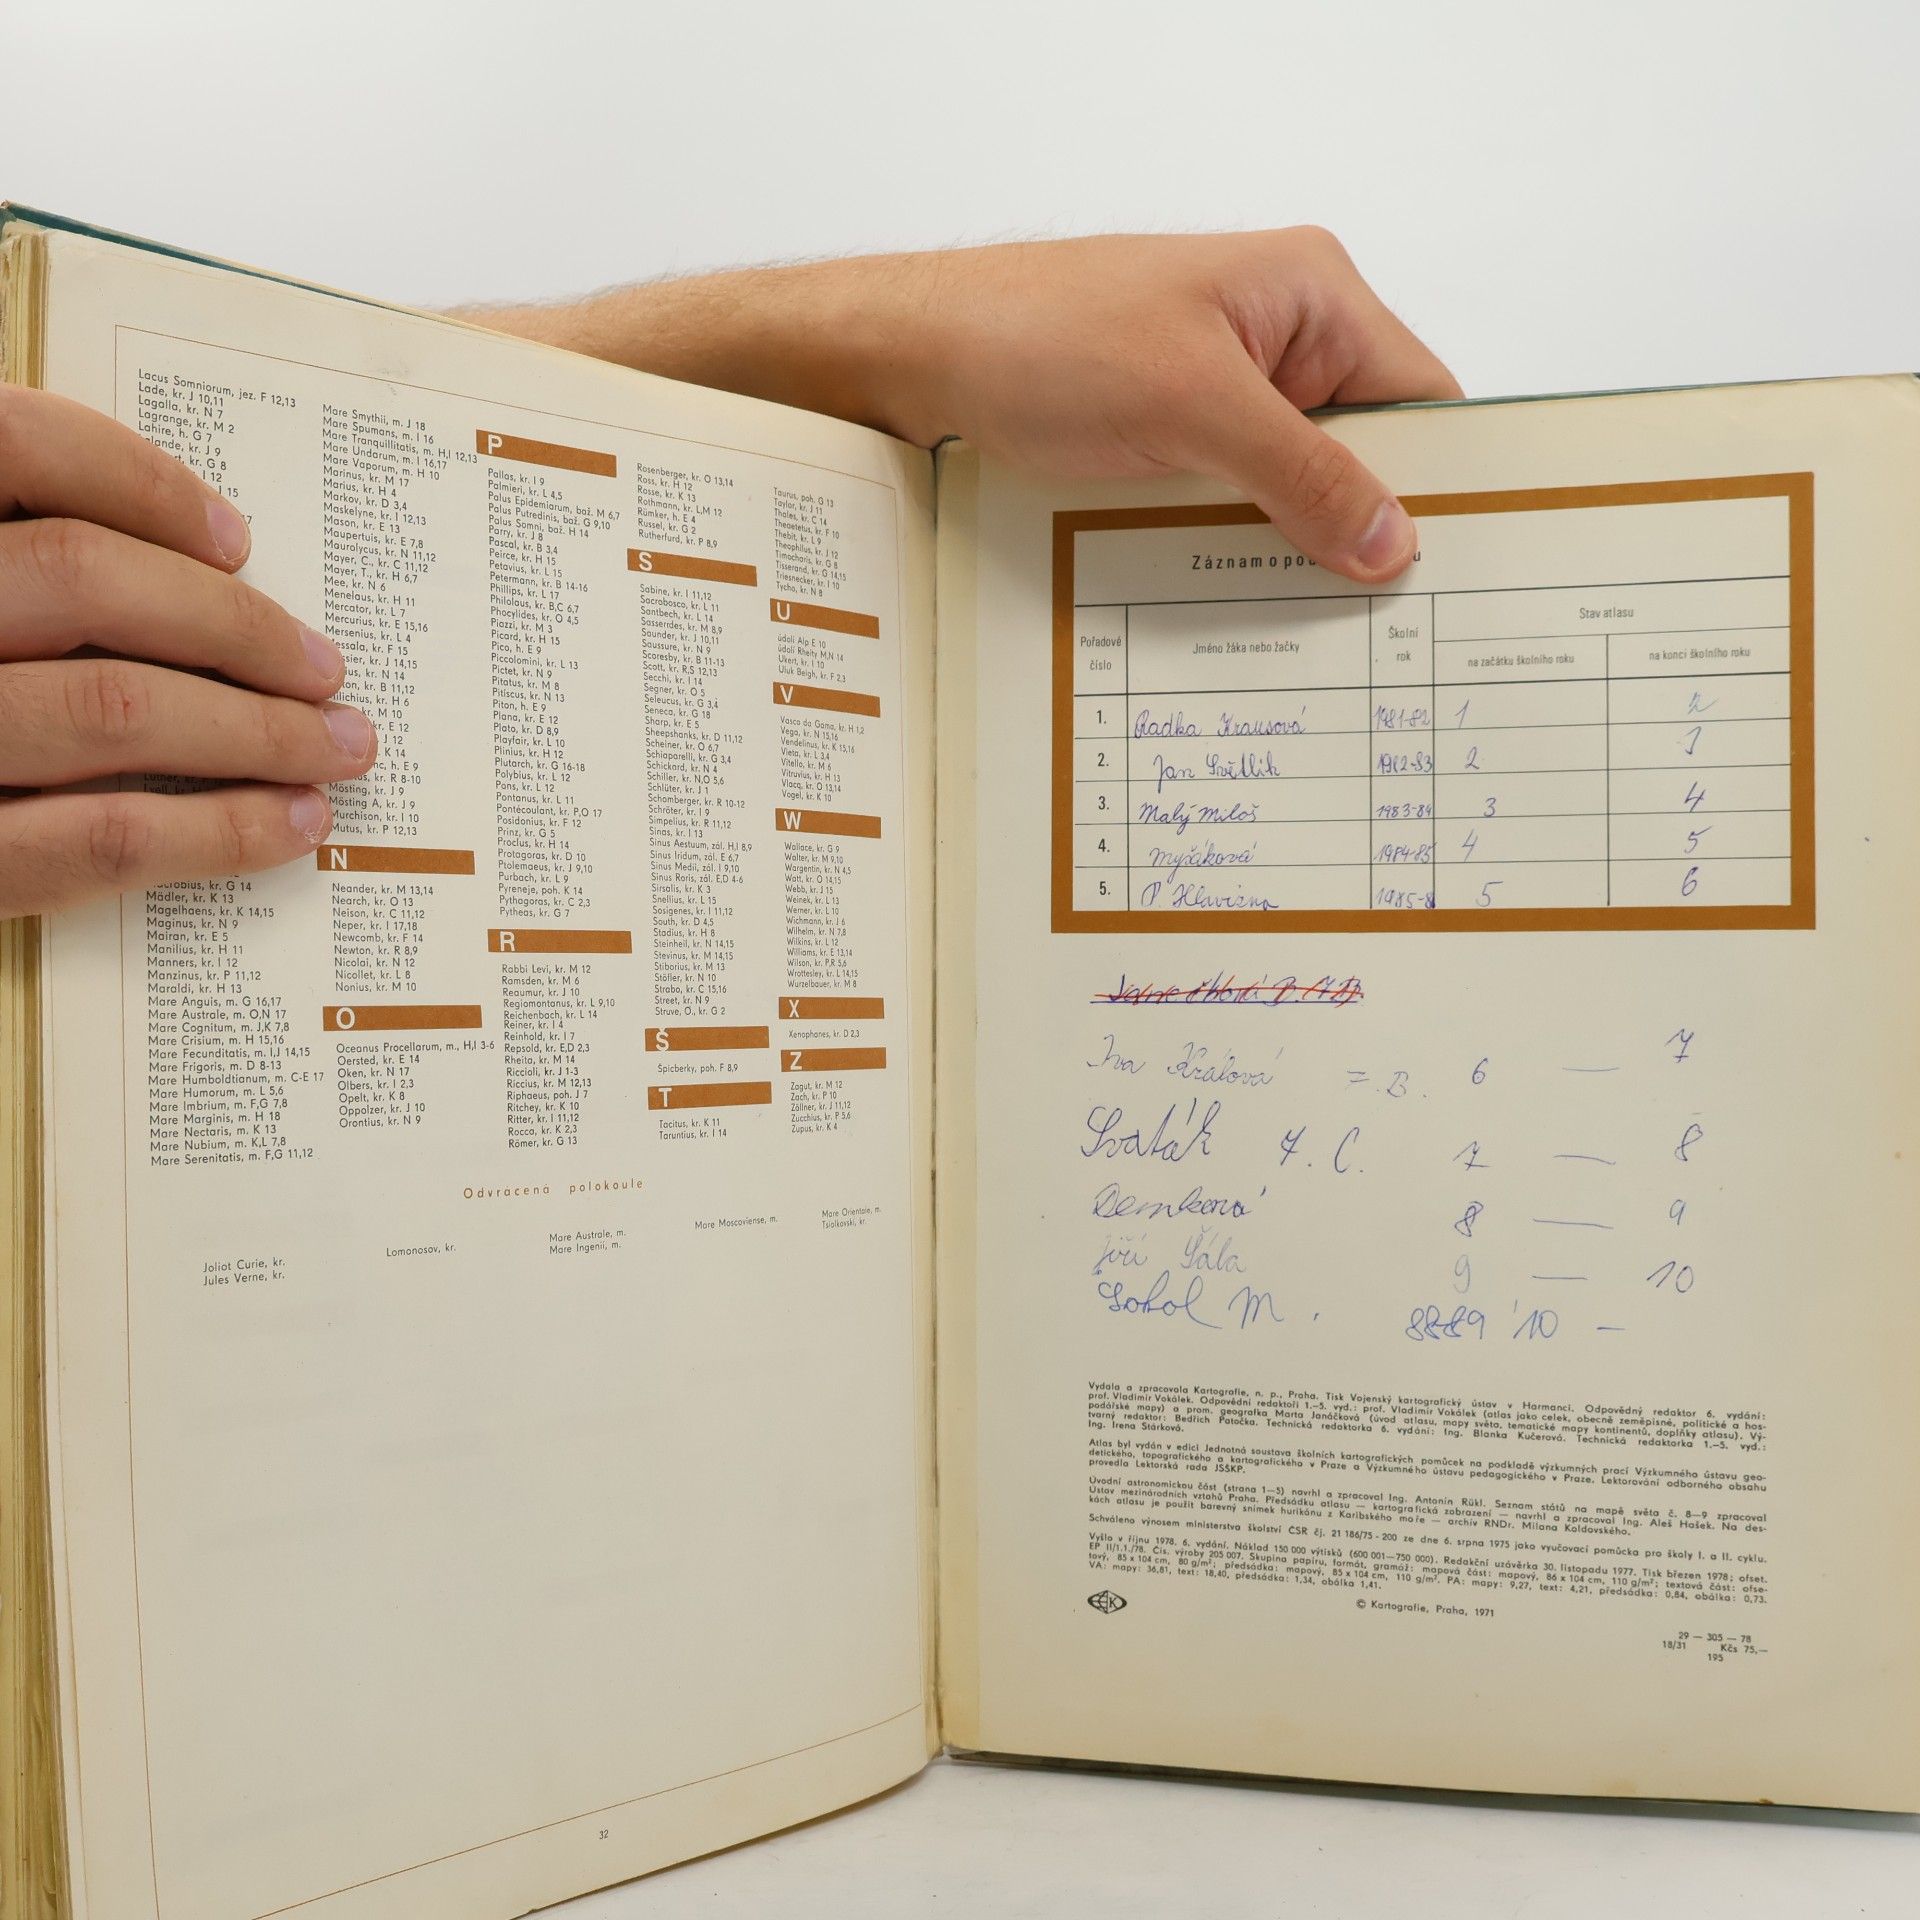 Lacus Somniorum, jez. F 12,13
Lade, kr. J 10,11
Lagalla, kr. N 7
Lagrange, kr. M 2
Lahire, h. G 7
kr. J 9
kr. G 8
I 12
J 15
17
G 14
Mädler, kr. K 13
Magelhaens, kr. K 14,15
Maginus, kr. N 9
Mairan, kr. E 5
Manilius, kr. H 11
Manners, kr. I 12
Manzinus, kr. P 11,12
Maraldi, kr. H 13
Mare Anguis, m. G 16,17
Mare Australe, m. O,N 17
Mare Cognitum, m. J,K 7,8
Mare Crisium, m. H 15,16
Mare Fecunditatis, m. I,J 14,15
Mare Frigoris, m. D 8-13
Mare Humboldtianum, m. C-E 17
Mare Humorum, m. L 5,6
Mare Imbrium, m. F,G 7,8
Mare Marginis, m. H 18
Mare Nectaris, m. K 13
Mare Nubium, m. K,L 7,8
Mare Serenitatis, m. F,G 11,12
Mare Smythii, m. J 18
Mare Spumans, m. I 16
Mare Tranquillitatis, m. H,I 12,13
Mare Undarum, m. I 16,17
Mare Vaporum, m. H 10
Marinus, kr. M 17
Marius, kr. H 4
Markov, kr. D 3,4
Maskelyne, kr. I 12,13
Mason, kr. E 13
Maupertuis, kr. E 7,8
Maurolycus, kr. N 11,12
Mayer, C., kr. C 11,12
Mayer, T., kr. H 6,7
Mee, kr. N 6
Menelaus, kr. H 11
Mercator, kr. L 7
Mercurius, kr. E 15,16
Mersenius, kr. L 4
kr. F 15
kr. J 14,15
kr. N 14
kr. B 11,12
kr. H 6
kr. M 10
kr. E 12
J 12
K 14
h. E 9
kr. R 8-10
Mösting, kr. J 9
Mösting A, kr. J 9
Murchison, kr. I 10
Mutus, kr. P 12,13
N
Neander, kr. M 13,14
Nearch, kr. O 13
Neison, kr. C 11,12
Neper, kr. I 17,18
Newcomb, kr. F 14
Newton, kr. R 8,9
Nicolai, kr. N 12
Nicollet, kr. L 8
Nonius, kr. M 10
O
Oceanus Procellarum, m., H,I 3-6
Oersted, kr. E 14
Oken, kr. N 17
Olbers, kr. I 2,3
Opelt, kr. K 8
Oppolzer, kr. J 10
Orontius, kr. N 9
P
Pallas, kr. I 9
Palmieri, kr. L 4,5
Palus Epidemiarum, baž. M 6,7
Palus Putredinis, baž. G 9,10
Palus Somni, baž. H 14
Parry, kr. J 8
Pascal, kr. B 3,4
Peirce, kr. H 15
Petavius, kr. L 15
Petermann, kr. B 14-16
Phillips, kr. L 17
Philolaus, kr. B,C 6,7
Phocylides, kr. O 4,5
Piazzi, kr. M 3
Picard, kr. H 15
Pico, h. E 9
Piccolomini, kr. L 13
Pictet, kr. N 9
Pitatus, kr. M 8
Pitiscus, kr. N 13
Piton, h. E 9
Plana, kr. E 12
Plato, kr. D 8,9
Playfair, kr. L 10
Plinius, kr. H 12
Plutarch, kr. G 16-18
Polybius, kr. L 12
Pons, kr. L 12
Pontanus, kr. L 11
Pontécoulant, kr. P,O 17
Posidonius, kr. F 12
Prinz, kr. G 5
Proclus, kr. H 14
Protagoras, kr. D 10
Ptolemaeus, kr. J 9,10
Purbach, kr. L 9
Pyreneje, poh. K 14
Pythagoras, kr. C 2,3
Pytheas, kr. G 7
R
Rabbi Levi, kr. M 12
Ramsden, kr. M 6
Reaumur, kr. J 10
Regiomontanus, kr. L 9,10
Reichenbach, kr. L 14
Reiner, kr. I 4
Reinhold, kr. I 7
Repsold, kr. E,D 2,3
Rheita, kr. M 14
Riccioli, kr. J 1-3
Riccius, kr. M 12,13
Riphaeus, poh. J 7
Ritchey, kr. K 10
Ritter, kr. I 11,12
Rocca, kr. K 2,3
Römer, kr. G 13
Rosenberger, kr. O 13,14
Ross, kr. H 12
Rosse, kr. K 13
Rothmann, kr. L,M 12
Römker, h. E 4
Russel, kr. G 2
Rutherfurd, kr. P 8,9
S
Sabine, kr. I 11,12
Sacrobosco, kr. L 11
Santbech, kr. L 14
Sasserdes, kr. M 8,9
Saunder, kr. J 10,11
Saussure, kr. N 9
Scoresby, kr. B 11-13
Scott, kr. R,S 12,13
Secchi, kr. I 14
Segner, kr. O 5
Seleucus, kr. G 3,4
Seneca, kr. G 18
Sharp, kr. E 5
Sheepshanks, kr. D 11,12
Scheiner, kr. O 6,7
Schiaparelli, kr. G 3,4
Schickard, kr. N 4
Schiller, kr. N,O 5,6
Schlüter, kr. J 1
Schomberger, kr. R 10-12
Schröter, kr. I 9
Simpelius, kr. R 11,12
Sinas, kr. I 13
Sinus Aestuum, zál. H,I 8,9
Sinus Iridum, zál. E 6,7
Sinus Medii, zál. I 9,10
Sinus Roris, zál. E,D 4-6
Sirsalis, kr. K 3
Snellius, kr. L 15
Sosigenes, kr. I 11,12
South, kr. D 4,5
Stadius, kr. H 8
Steinheil, kr. N 14,15
Stevinus, kr. M 14,15
Stiborius, kr. M 13
Stöfler, kr. N 10
Strabo, kr. C 15,16
Street, kr. N 9
Struve, O., kr. G 2
Š
Špicberky, poh. F 8,9
T
Tacitus, kr. K 11
Taruntius, kr. I 14
Taurus, poh. G 13
Taylor, kr. J 11
Thales, kr. C 14
Theaetetus, kr. F 10
Thebit, kr. L 9
Theophilus, kr. J 12
Timocharis, kr. G 8
Tisserand, kr. G 14,15
Triesnecker, kr. I 10
Tycho, kr. N 8
U
údolí Alp E 10
údolí Rheity M,N 14
Ukert, kr. I 10
Uluk Beigh, kr. F 2,3
V
Vasco da Gama, kr. H 1,2
Vega, kr. N 15,16
Vendelinus, kr. K 15,16
Vieta, kr. L 3,4
Vitello, kr. M 6
Vitruvius, kr. H 13
Vlacq, kr. O 13,14
Vogel, kr. K 10
W
Wallace, kr. G 9
Walter, kr. M 9,10
Wargentin, kr. N 4,5
Watt, kr. O 14,15
Webb, kr. J 15
Weinek, kr. L 13
Werner, kr. L 10
Wichmann, kr. J 6
Wilhelm, kr. N 7,8
Wilkins, kr. L 12
Williams, kr. E 13,14
Wilson, kr. P,R 5,6
Wrottesley, kr. L 14,15
Wurzelbauer, kr. M 8
X
Xenophanes, kr. D 2,3
Z
Zagut, kr. M 12
Zach, kr. P 10
Zöllner, kr. J 11,12
Zucchius, kr. P 5,6
Zupus, kr. K 4
Odvrácená polokoule
Joliot Curie, kr.
Jules Verne, kr.
Lomonosov, kr.
Mare Australe, m.
Mare Ingenii, m.
Mare Moscoviense, m.
Mare Orientale, m.
Tsiolkovski, kr.
32
Záznam o
Pořadové číslo Jméno žáka nebo žačky Školní rok Stav atlasu
na začátku školního roku na konci školního roku
1. Radka Krausová 1981-82 1 2
2. Jan Světlík 1982-83 2 3
3. Malý Miloš 1983-84 3 4
4. Myšáková 1984-85 4 5
5. P. Hlavizna 1985-8 5 6
Iva Králová 7.B. 6 — 7
Svaták 7.C. 7 — 8
8 — 9
Jiří Šála 9 — 10
Sokol M. 88-89 10 —
Vydala a zpracovala Kartografie, n. p., Praha. Tisk Vojenský kartografický ústav v Harmanci. Odpovědný redaktor 6. vydání:
prof. Vladimír Vokálek. Odpovědní redaktoři 1.–5. vyd.: prof. Vladimír Vokálek (atlas jako celek, obecně zeměpisné, politické a hos-
podářské mapy) a prom. geografka Marta Janáčková (úvod atlasu, mapy světa, tematické mapy kontinentů, doplňky atlasu). Vý-
tvarný redaktor: Bedřich Patočka. Technická redaktorka 6. vydání: Ing. Blanka Kučerová. Technická redaktorka 1.–5. vyd.:
Ing. Irena Stárková.
Atlas byl vydán v edici Jednotná soustava školních kartografických pomůcek na podkladě výzkumných prací Výzkumného ústavu geo-
detického, topografického a kartografického v Praze a Výzkumného ústavu pedagogického v Praze. Lektorování odborného obsahu
provedla Lektorská rada JSŠKP.
Úvodní astronomickou část (strana 1—5) navrhl a zpracoval Ing. Antonín Rükl. Seznam států na mapě světa č. 8—9 zpracoval
Ústav mezinárodních vztahů Praha. Předsádku atlasu — kartografická zobrazení — navrhl a zpracoval Ing. Aleš Hašek. Na des-
kách atlasu je použit barevný snímek hurikánu z Karibského moře — archív RNDr. Milana Koldovského.
Schváleno výnosem ministerstva školství ČSR čj. 21 186/75 - 200 ze dne 6. srpna 1975 jako vyučovací pomůcka pro školy I. a II. cyklu.
Vyšlo v říjnu 1978. 6. vydání. Náklad 150 000 výtisků (600 001—750 000). Redakční uzávěrka 30. listopadu 1977. Tisk březen 1978; ofset.
EP II/1.1./78. Čís. výroby 205 007. Skupina papíru, formát, gramáž: mapová část: mapový, 86 x 104 cm, 110 g/m²; textová část: ofse-
tový, 85 x 104 cm, 80 g/m²; předsádka: mapový, 85 x 104 cm, 110 g/m². PA: mapy: 9,27, text: 4,21, předsádka: 0,84, obálka: 0,73.
VA: mapy: 36,81, text: 18,40, předsádka: 1,34, obálka 1,41.
K
© Kartografie, Praha, 1971
29 — 305 — 78
18/31 Kčs 75,—
195